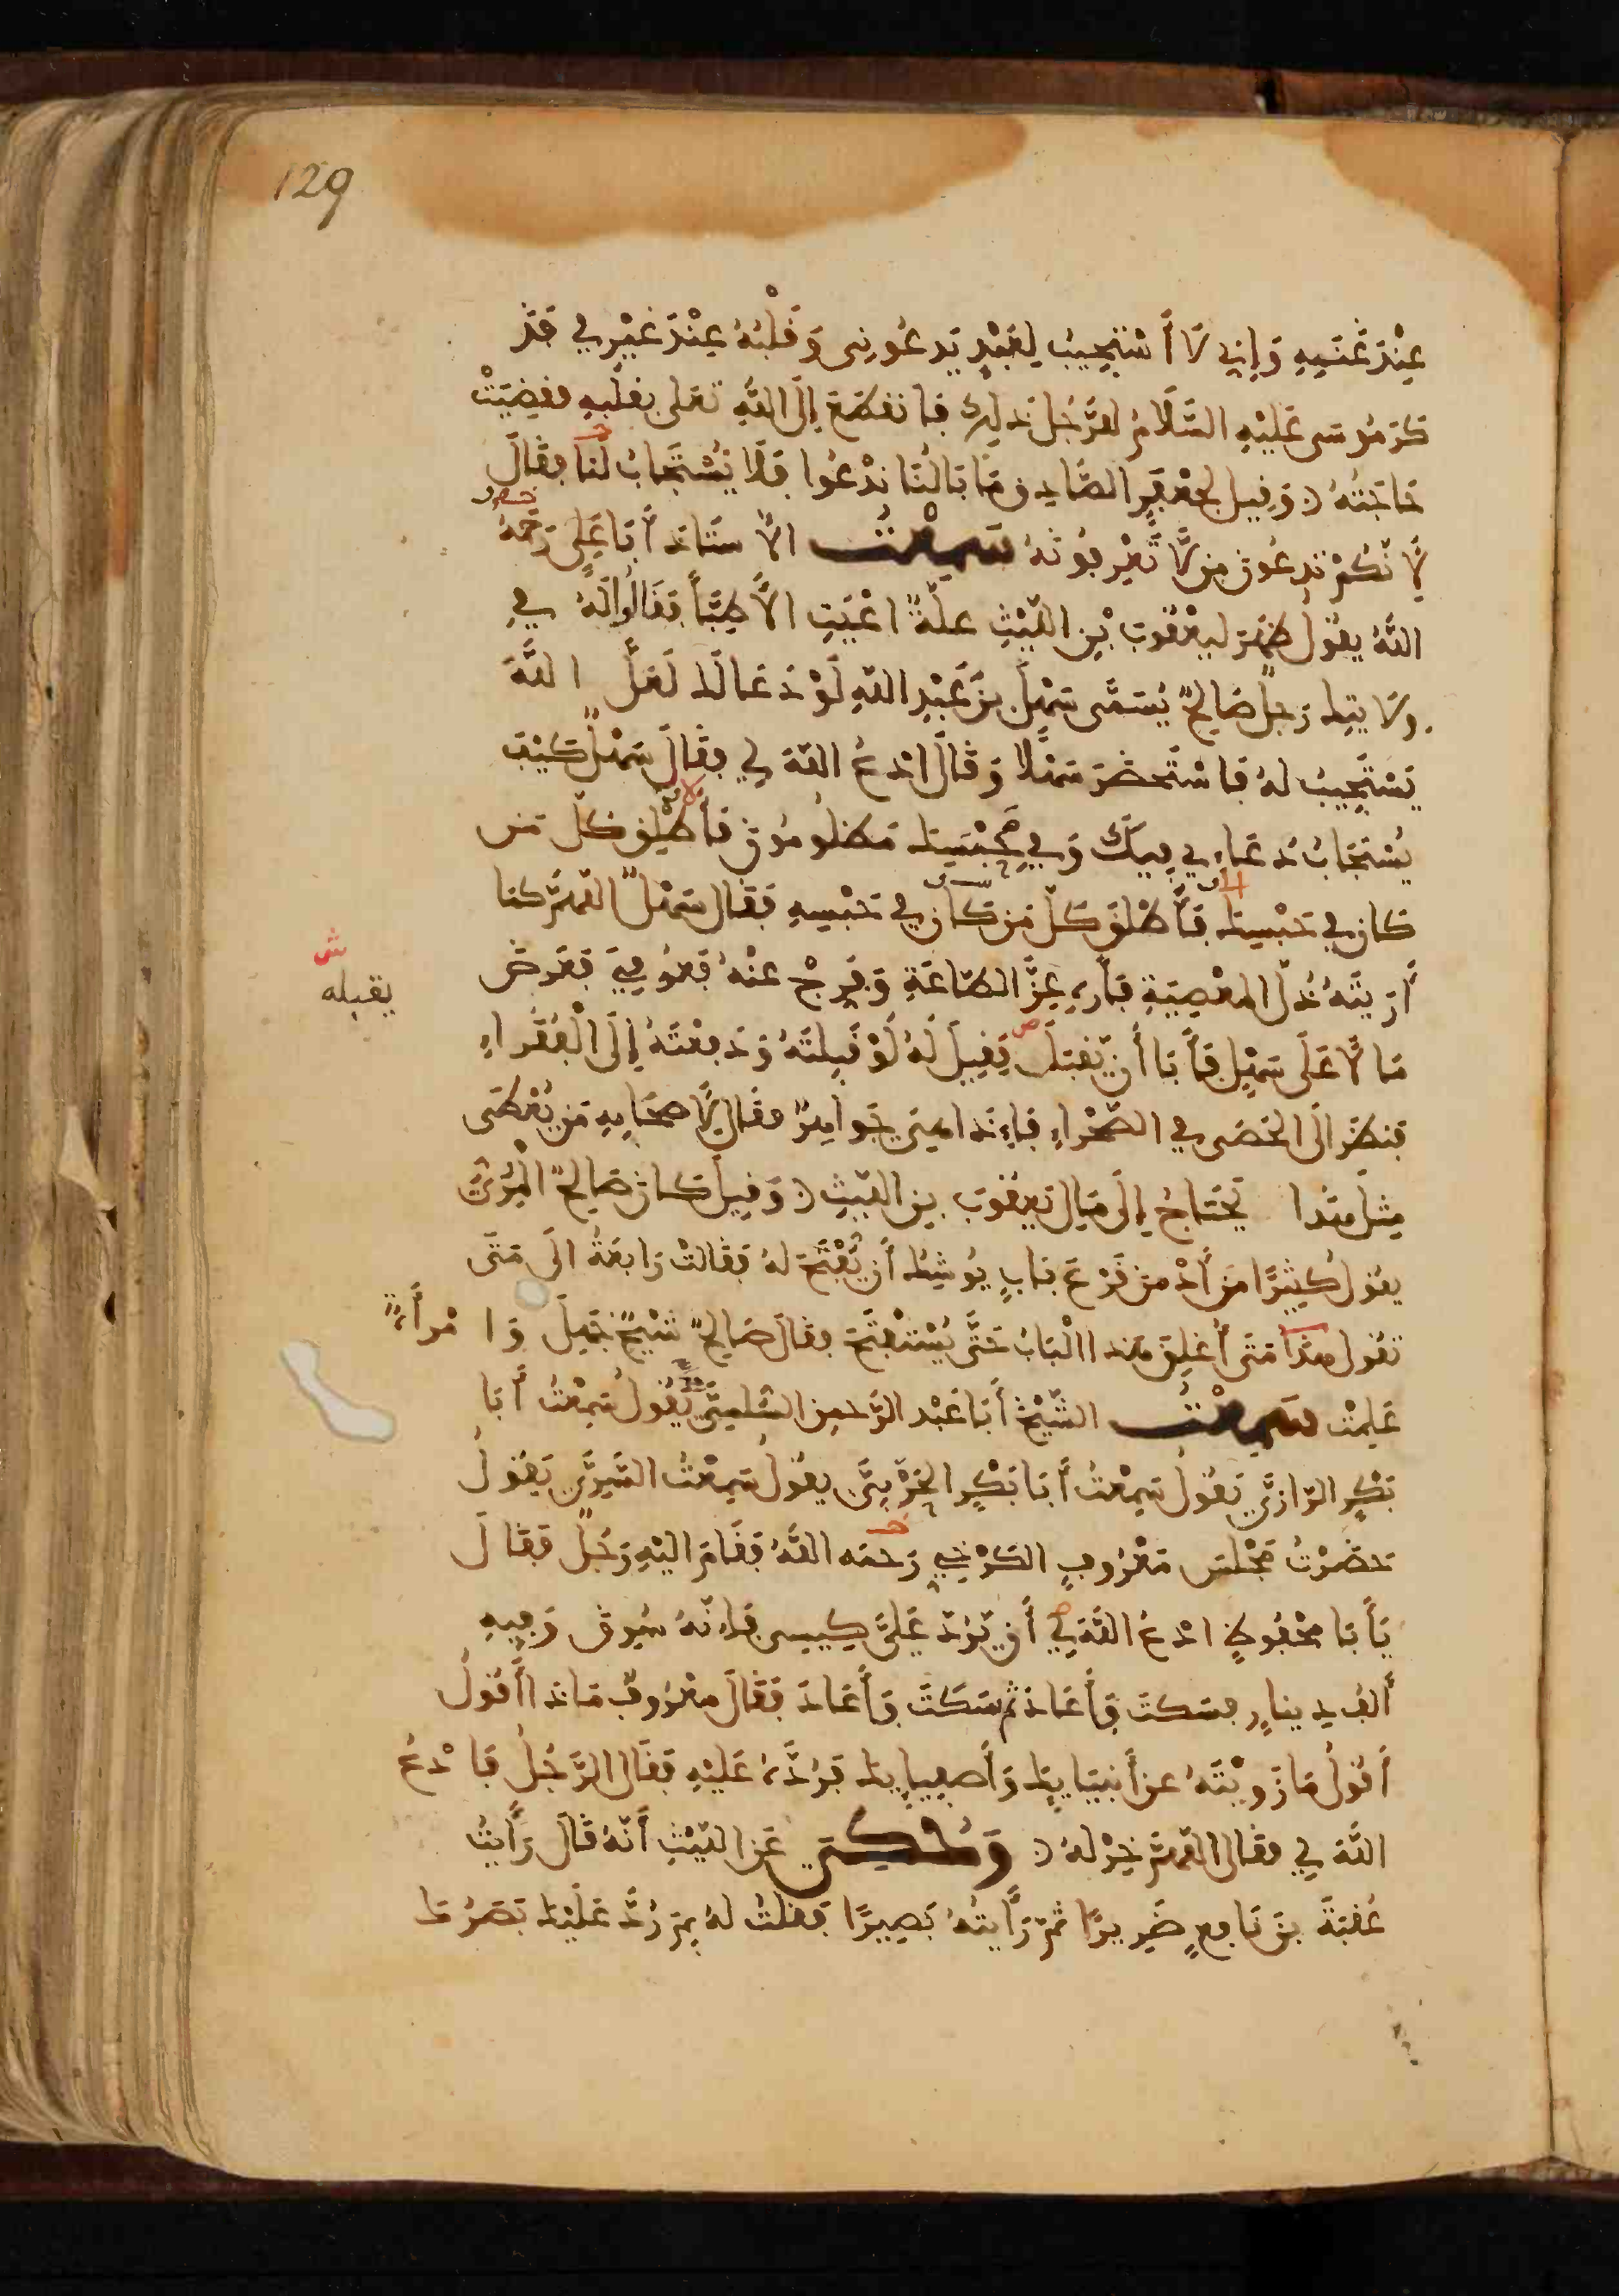 129
عِنْدَ غَنَمِهِ وَإِنِّي لَا أَسْتَجِيبُ لِعَبْدٍ يَدْعُونِي وَقَلْبُهُ عِنْدَ غَيْرِي فَذَ
كَرَ مُوسَى عَلَيْهِ السَّلَامُ لِلرَّجُلِ ذَلِكَ فَانْقَطَعَ إِلَى اللَّهِ تَعَلَى بِقَلْبِهِ فَقُضِيَتْ
حَاجَتُهُ وَقِيلَ لِجَعْفَرٍ الصَّادِقِ مَا بَالُنَا نَدْعُوا فَلَا يُسْتَجَابُ لَنَا فَقَالَ
لِأَنَّكُمْ تَدْعُونَ مَن لَّا تَعْرِفُونَهُ سَمِعْتُ الْأُسْتَاذَ أَبَا عَلِيٍّ رَحِمَهُ
اللَّهُ يَقُولُ ظَهَرَ لِيَعْقُوبَ بْنِ اللَّيْثِ عِلَّةٌ أَعْيَتِ الْأَطِبَّاءَ فَقَالُوا لَهُ فِي
وِلَايَتِكَ رَجُلٌ صَالِحٌ يُسَمَّى سَهْلَ بْنَ عَبْدِ اللَّهِ لَوْ دَعَا لَكَ لَعَلَّ اللَّهَ
يَسْتَجِيبُ لَهُ فَاسْتَحْضَرَ سَهْلًا وَقَالَ ادْعُ اللَّهَ لِي فَقَالَ سَهْلٌ كَيْفَ
يُسْتَجَابُ دُعَاءِي فِيكَ وَفِي مَحْبَسِكَ مَظْلُومُونَ فَأَطْلِقْ كُلَّ مَن
كَانَ فِي حَبْسِكَ فَأَطْلَقَ كُلَّ مَن كَانَ فِي حَبْسِهِ فَقَالَ سَهْلٌ اللَّهُمَّ كَمَا
أَرَيْتَهُ ذُلَّ الْمَعْصِيَةِ فَأَرِهِ عِزَّ الطَّاعَةِ وَفَرِّجْ عَنْهُ فَعُوفِيَ فَعَرَضَ
يقبله
مَالًا عَلَى سَهْلٍ فَأَبَا أَن يَّقْبَلَ فَقِيلَ لَهُ لَوْ قَبِلْتَهُ وَدَفَعْتَهُ إِلَى الْفُقَرَاءِ
فَنَظَرَ إِلَى الْحَصَى فِي الصَّحْرَاءِ فَإِذَا هِيَ جَوَاهِرٌ فَقَالَ لِأَصْحَابِهِ مَن يُعْطَى
مِثْلَ هَذَا يَحْتَاجُ إِلَى مَالِ يَعْقُوبَ بْنِ اللَّيْثِ وَقِيلَ كَانَ صَالِحٌ الْمُرِّيُّ
يَقُولُ كَثِيرًا مَن أَدْمَنَ قَرْعَ بَابٍ يُوشِكُ أَن يُفْتَحَ لَهُ فَقَالَتْ رَابِعَةُ إِلَى مَتَى
تَقُولُ هَذَا مَتَى أُغْلِقَ هَذَا الْبَابُ حَتَّى يُسْتَفْتَحَ فَقَالَ صَالِحٌ شَيْخٌ جَهِلَ وَامْرَأَةٌ
عَلِمَتْ سَمِعْتُ الشَّيْخَ أَبَا عَبْدِ الرَّحْمَنِ السُّلَمِيَّ يَقُولُ سَمِعْتُ أَبَا
بَكْرٍ الرَّازِيَّ يَقُولُ سَمِعْتُ أَبَا بَكْرٍ الْحَرْبِيَّ يَقُولُ سَمِعْتُ السَّرِيَّ يَقُولُ
حَضَرْتُ مَجْلِسَ مَعْرُوفٍ الْكَرْخِيِّ رَحِمَهُ اللَّهُ فَقَامَ إِلَيْهِ رَجُلٌ فَقَالَ
يَا أَبَا مَحْفُوظٍ ادْعُ اللَّهَ لِي أَن يَّرُدَّ عَلَيَّ كِيسِي فَإِنَّهُ سُرِقَ وَفِيهِ
أَلْفُ دِينَارٍ فَسَكَتَ فَأَعَادَ ثُمَّ سَكَتَ فَأَعَادَ فَقَالَ مَعْرُوفٌ مَاذَا أَقُولُ
أَقُولُ مَا زَوَيْتَهُ عَنْ أَنْبِيَايِكَ وَأَصْفِيَايِكَ فَرُدَّهُ عَلَيْهِ فَقَالَ الرَّجُلُ فَادْعُ
اللَّهَ لِي فَقَالَ اللَّهُمَّ خِرْ لَهُ وَحُكِيَ عَنِ اللَّيْثِ أَنَّهُ قَالَ رَأَيْتُ
عُقْبَةَ بْنَ نَافِعٍ ضَرِيرًا ثُمَّ رَأَيْتُهُ بَصِيرًا فَقُلْتُ لَهُ بِمَ رُدَّ عَلَيْكَ بَصَرُكَ